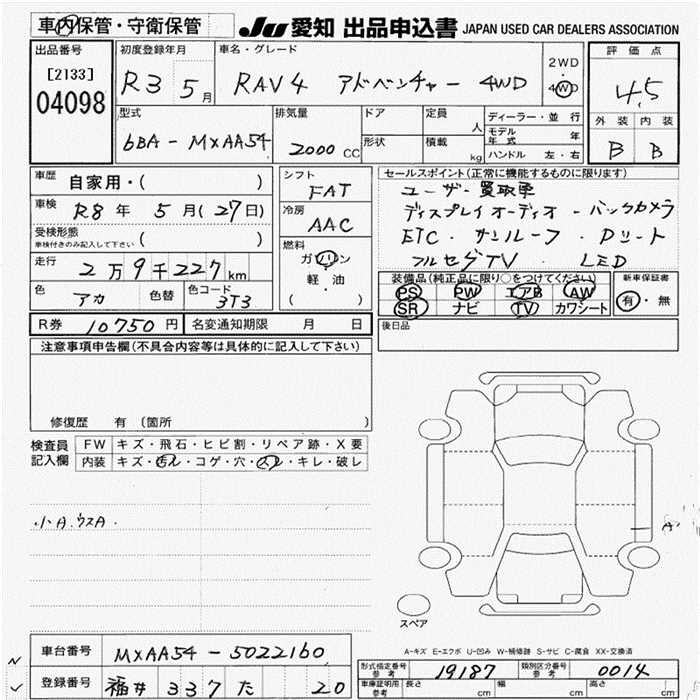 車内保管・守衛保管 JU 愛知 出品申込書 JAPAN USED CAR DEALERS ASSOCIATION
出品番号 初度登録年月 車名・グレード 2WD 評価点
[2133] R3 5月 RAV4 アドベンチャー 4WD ・ 4WD 4.5
04098 型式 排気量 ドア 定員 人 ディーラー・並行 外装 内装
6BA-MXAA54 2000 CC 形状 積載 kg モデル年式 年 B B
ハンドル 左・右
車歴 自家用・( ) シフト FAT セールスポイント(正常に機能するものに限ります)
車検 R8年 5月(27日) 冷房 AAC ユーザー買取車
受検形態 車検付きのみ記入して下さい ( ) ディスプレイオーディオ・バックカメラ
走行 2万9千227km 燃料 ガソリン・軽・油 ( ) ETC・サンルーフ・Dシート
フルセグTV・LED
色 アカ 色替 色コード 3T3 装備品(純正品に限り○をつけてください) 新車保証書
PS PW エアB AW 有・無
SR ナビ TV カワシート
R券 10750円 名変通知期限 月 日 後日品
注意事項申告欄(不具合内容等は具体的に記入して下さい)
修復歴 有〔箇所 〕
検査員記入欄 FW キズ・飛石・ヒビ割・リペア跡・X要
内装 キズ・汚れ・コゲ・穴・スレ・キレ・破レ
小A.ウスA. A'
スペア
A-キズ E-エクボ U-凹み W-補修跡 S-サビ C-腐食 XX-交換済
車台番号 MXAA54-5022160 型式指定番号 参考 19187 類別区分番号 参考 0014
登録番号 福井 337 た 20 車庫証明用 参考 長さ cm 幅 cm 高さ cm